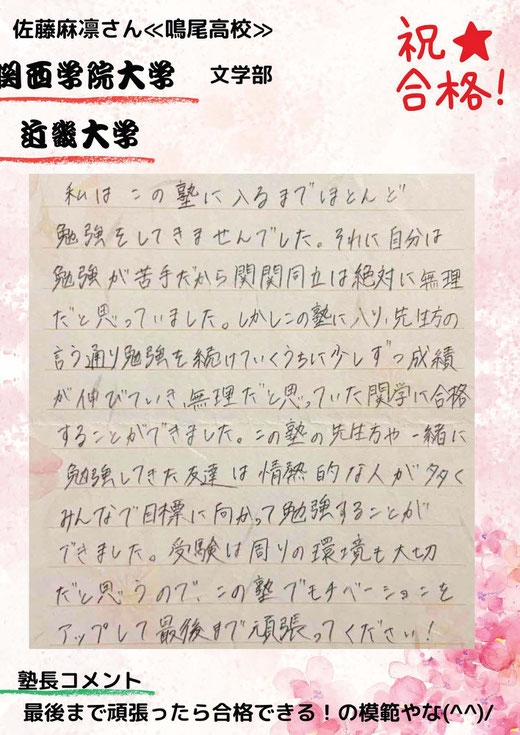 佐藤麻凛さん≪鳴尾高校≫
祝★
関西学院大学 文学部
合格!
近畿大学
私はこの塾に入るまでほとんど
勉強をしてきませんでした。それに自分は
勉強が苦手だから関関同立は絶対に無理
だと思っていました。しかしこの塾に入り、先生方の
言う通り勉強を続けていくうちに少しずつ成績
が伸びていき、無理だと思っていた関学に合格
することができました。この塾の先生方や一緒に
勉強してきた友達は情熱的な人が多く
みんなで目標に向かって勉強することが
できました。受験は周りの環境も大切
だと思うので、この塾でモチベーションを
アップして最後まで頑張ってください!
塾長コメント
最後まで頑張ったら合格できる!の模範やな(^^)/